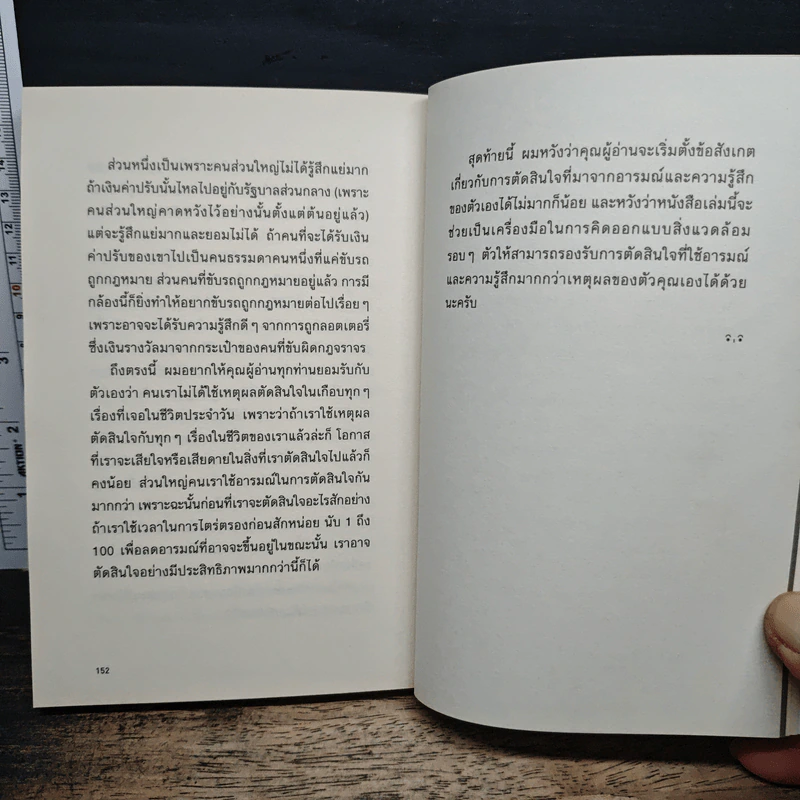 ส่วนหนึ่งเป็นเพราะคนส่วนใหญ่ไม่ได้รู้สึกแย่มาก
ถ้าเงินค่าปรับนั้นไหลไปอยู่กับรัฐบาลส่วนกลาง (เพราะ
คนส่วนใหญ่คาดหวังไว้อย่างนั้นตั้งแต่ต้นอยู่แล้ว)
แต่จะรู้สึกแย่มากและยอมไม่ได้ ถ้าคนที่จะได้รับเงิน
ค่าปรับของเขาไปเป็นคนธรรมดาคนหนึ่งที่แค่ขับรถ
ถูกกฎหมาย ส่วนคนที่ขับรถถูกกฎหมายอยู่แล้ว การมี
กล้องนี้ก็ยิ่งทำให้อยากขับรถถูกกฎหมายต่อไปเรื่อยๆ
เพราะอาจจะได้รับความรู้สึกดีๆ จากการถูกลอตเตอรี่
ซึ่งเงินรางวัลมาจากกระเป๋าของคนที่ขับผิดกฎจราจร
ถึงตรงนี้ ผมอยากให้คุณผู้อ่านทุกท่านยอมรับกับ
ตัวเองว่า คนเราไม่ได้ใช้เหตุผลตัดสินใจในเกือบทุกๆ
เรื่องที่เจอในชีวิตประจำวัน เพราะว่าถ้าเราใช้เหตุผล
ตัดสินใจกับทุกๆ เรื่องในชีวิตของเราแล้วล่ะก็ โอกาส
ที่เราจะเสียใจหรือเสียดายในสิ่งที่เราตัดสินใจไปแล้วก็
คงน้อย ส่วนใหญ่คนเราใช้อารมณ์ในการตัดสินใจกัน
มากกว่า เพราะฉะนั้นก่อนที่เราจะตัดสินใจอะไรสักอย่าง
ถ้าเราใช้เวลาในการไตร่ตรองก่อนสักหน่อย นับ 1 ถึง
100 เพื่อลดอารมณ์ที่อาจจะขึ้นอยู่ในขณะนั้น เราอาจ
ตัดสินใจอย่างมีประสิทธิภาพมากกว่านี้ก็ได้
152
สุดท้ายนี้ ผมหวังว่าคุณผู้อ่านจะเริ่มตั้งข้อสังเกต
เกี่ยวกับการตัดสินใจที่มาจากอารมณ์และความรู้สึก
ของตัวเองได้ไม่มากก็น้อย และหวังว่าหนังสือเล่มนี้จะ
ช่วยเป็นเครื่องมือในการคิดออกแบบสิ่งแวดล้อม
รอบๆ ตัวให้สามารถรองรับการตัดสินใจที่ใช้อารมณ์
และความรู้สึกมากกว่าเหตุผลของตัวคุณเองได้ด้วย
นะครับ